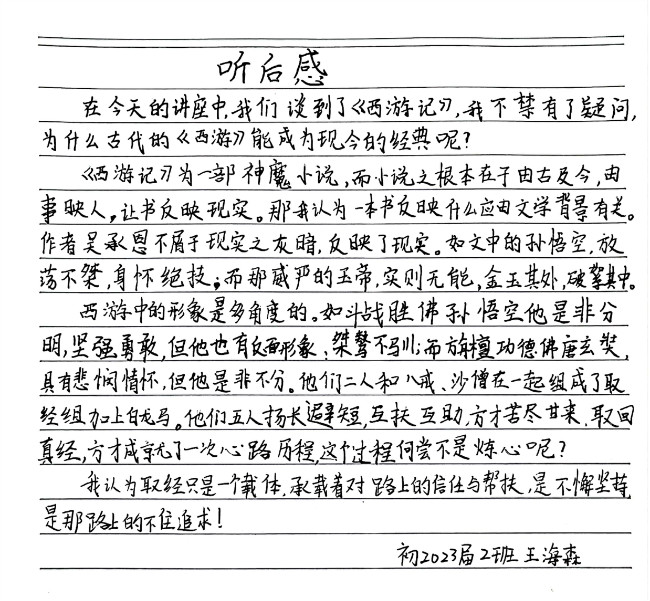 听后感
在今天的讲座中,我们谈到了《西游记》,我不禁有了疑问,
为什么古代的《西游》能成为现今的经典呢?
《西游记》为一部神魔小说,而小说之根本在于由古及今,由
事映人,让书反映现实。那我认为一本书反映什么应由文学背景有关。
作者吴承恩不屑于现实之灰暗,反映了现实。如文中的孙悟空,放
荡不桀,身怀绝技;而那威严的玉帝,实则无能,金玉其外,破絮其中。
西游中的形象是多角度的。如斗战胜佛孙悟空他是非分
明,坚强勇敢,但他也有反面形象、桀骜不驯;而旃檀功德佛唐玄奘,
具有悲悯情怀,但他是非不分。他们二人和八戒、沙僧在一起组成了取
经组加上白龙马。他们五人扬长避短,互扶互助,方才苦尽甘来,取回
真经,方才成就了一次心路历程,这个过程何尝不是炼心呢?
我认为取经只是一个载体,承载着对路上的信任与帮扶,是不懈坚持,
是那路上的不住追求!
初2023届2班王海森